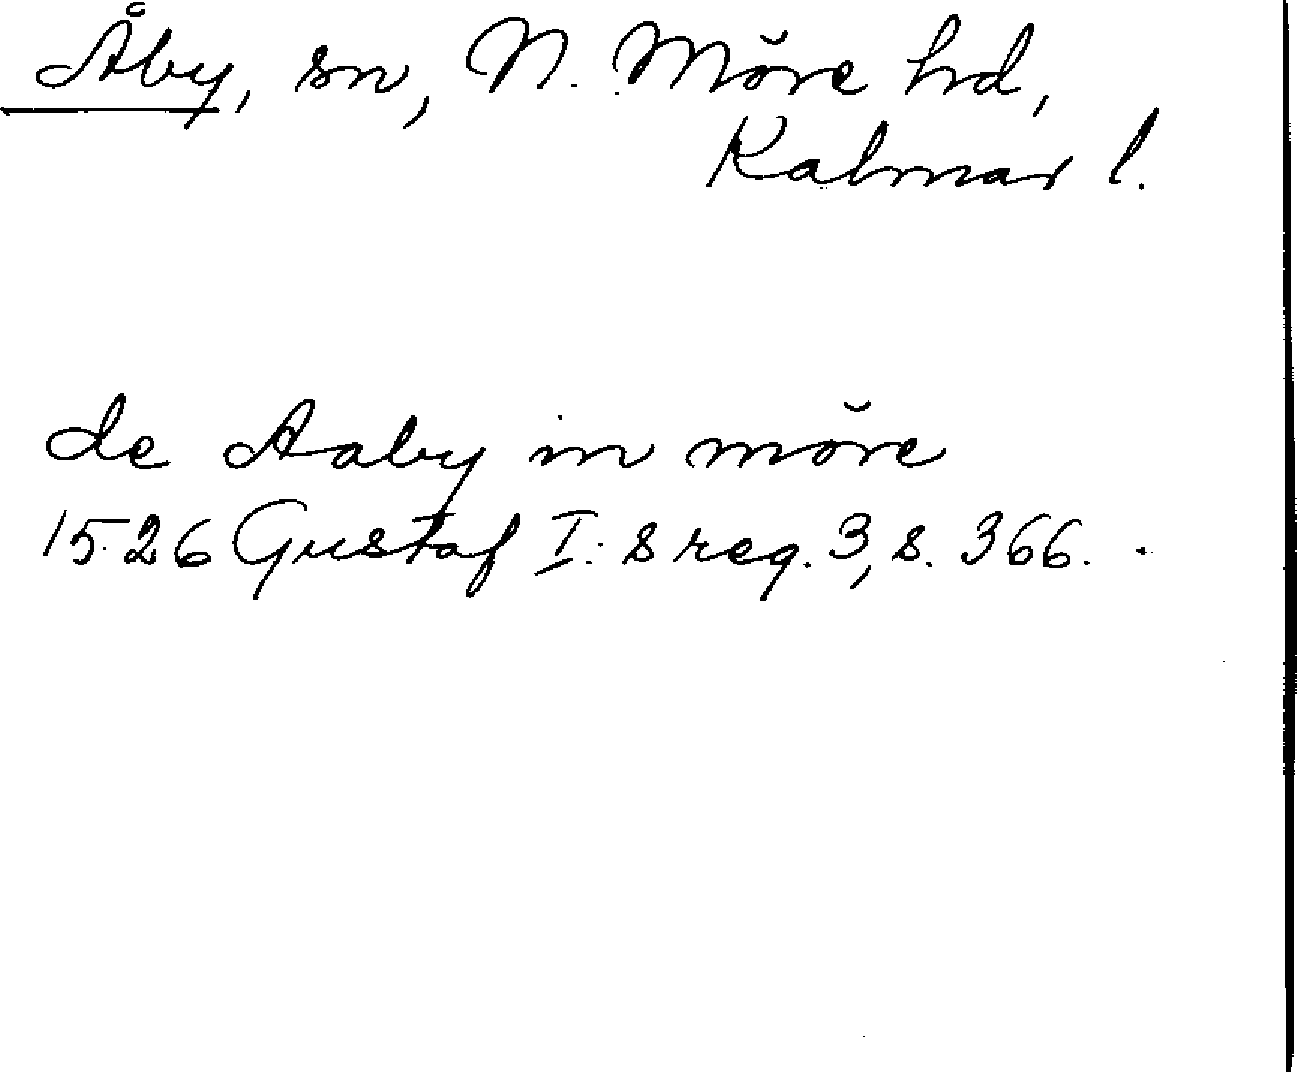 Åby, sn, N. Möre hd,
Kalmar l.
de Aaby in möre
1526 Gustaf I: s reg. 3, s. 366.